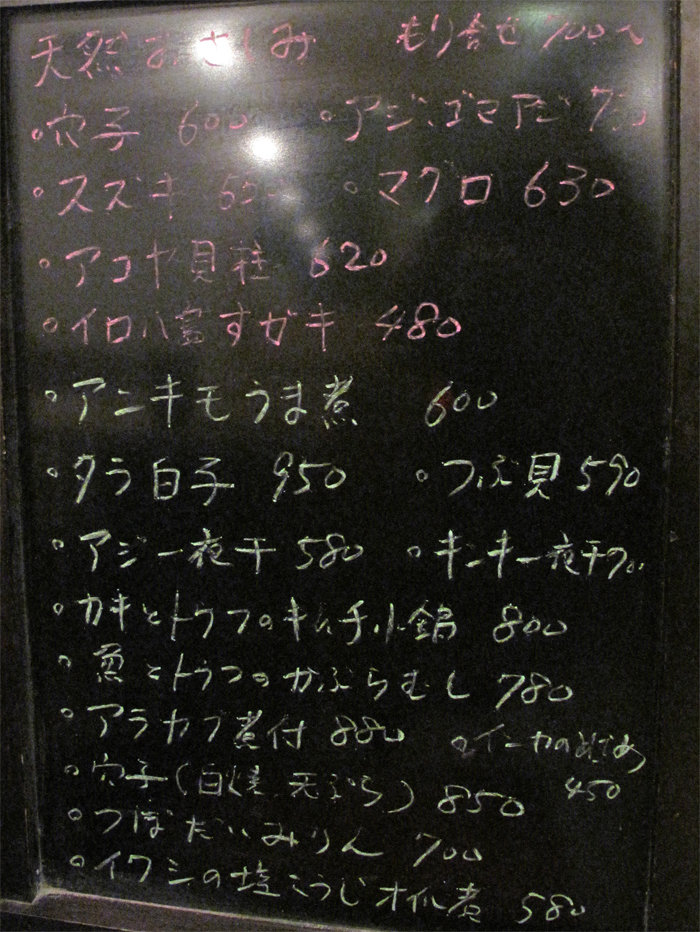 天然おさしみ もり合せ 700〜
・穴子 600 ・アジ、ゴマアジ
・スズキ ・マグロ 630
・アコヤ貝柱 620
・イロハ島すガキ 480
・アンキモうま煮 600
・タラ白子 950 ・つぶ貝 590
・アジ一夜干 580 ・キンキ一夜干
・カキとトウフのキムチ小鍋 800
・魚とトウフのかぶらむし 780
・アラカブ煮付 880 ・インカのめざめ
・穴子(白焼、天ぷら) 850 450
・つぼだいみりん 700
・イワシの塩こうじオイル煮 580